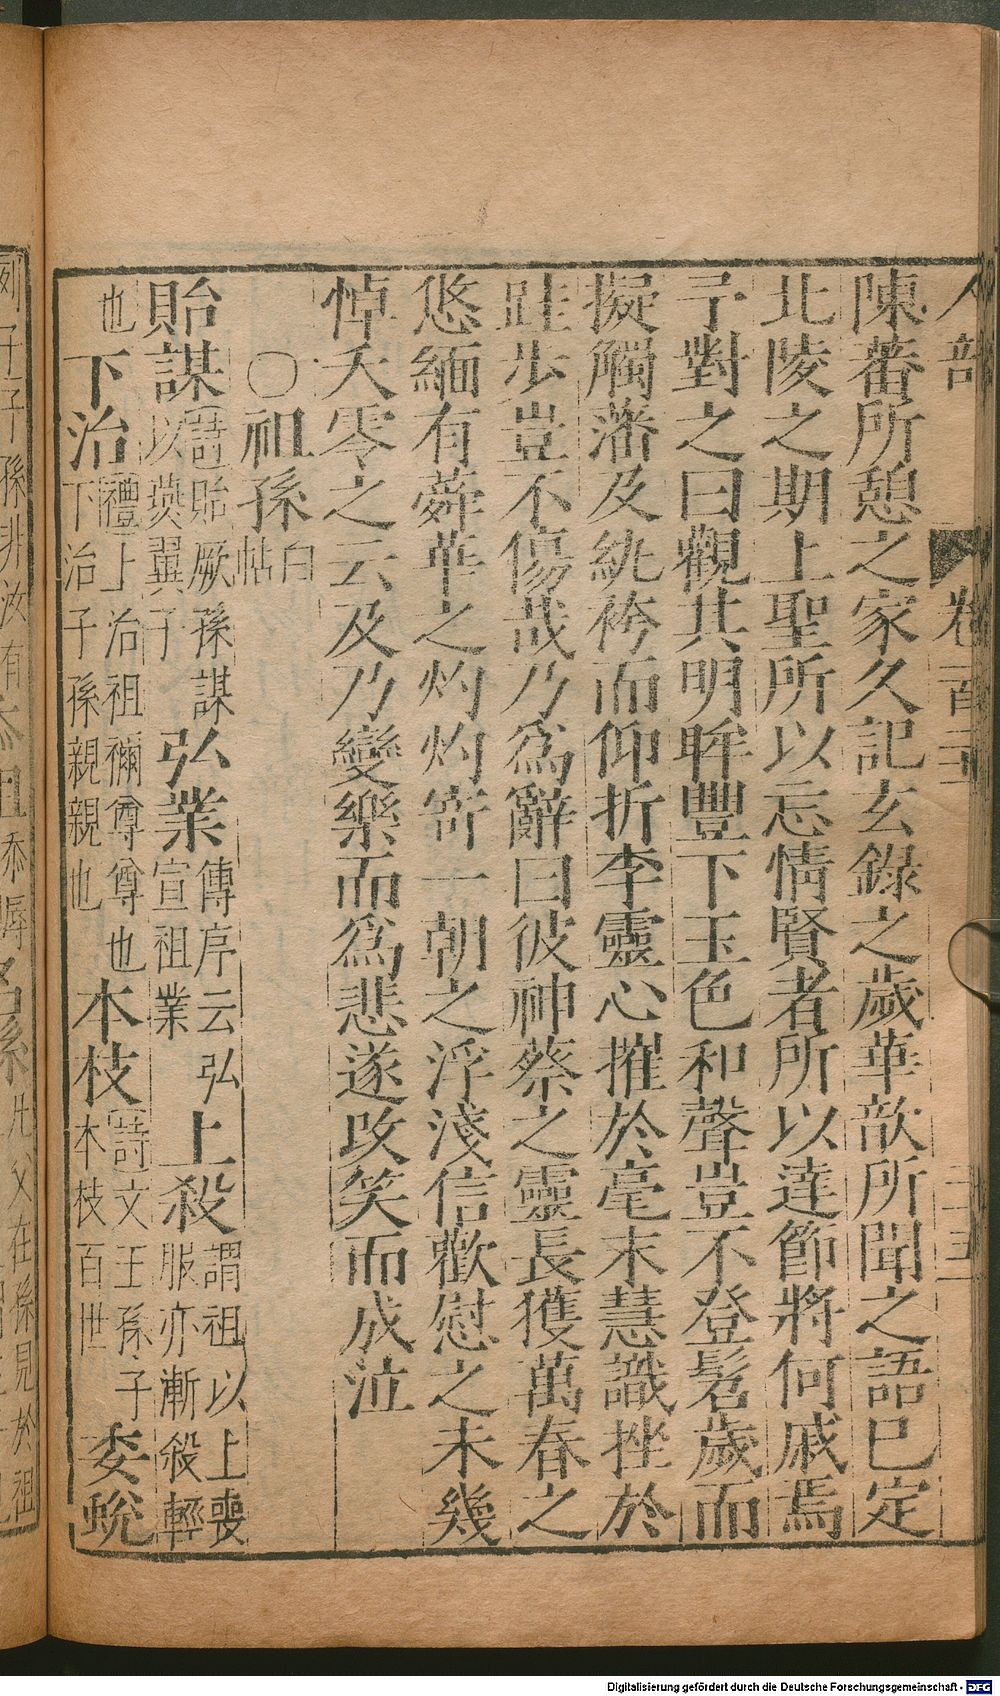 人部 卷百二十 二十五
陳蕃所憩之家久記玄錄之歲華歆所聞之語已定
北陵之期上聖所以忘情賢者所以達節將何戚焉
予對之曰觀其明眸豐下玉色和聲豈不登髫歲而
擬觸藩及紈袴而仰折李靈心摧於毫末慧識挫於
跬步豈不傷哉乃爲辭曰彼神蔡之靈長獲萬春之
悠緬有蕣華之灼灼寄一朝之浮淺信歡慰之未幾
悼夭零之云及乃變樂而爲悲遂改笑而成泣
○祖孫白帖
貽謀詩貽厥孫謀以燕翼子弘業傳序云弘宣祖業上殺謂祖以上喪服亦漸殺輕
也下治禮上治祖禰尊尊也下治子孫親親也本枝詩文王孫子本枝百世委蛻
列子子孫非汝有忝祖忝辱凡父在孫見於祖
Digitalisierung gefördert durch die Deutsche Forschungsgemeinschaft - DFG